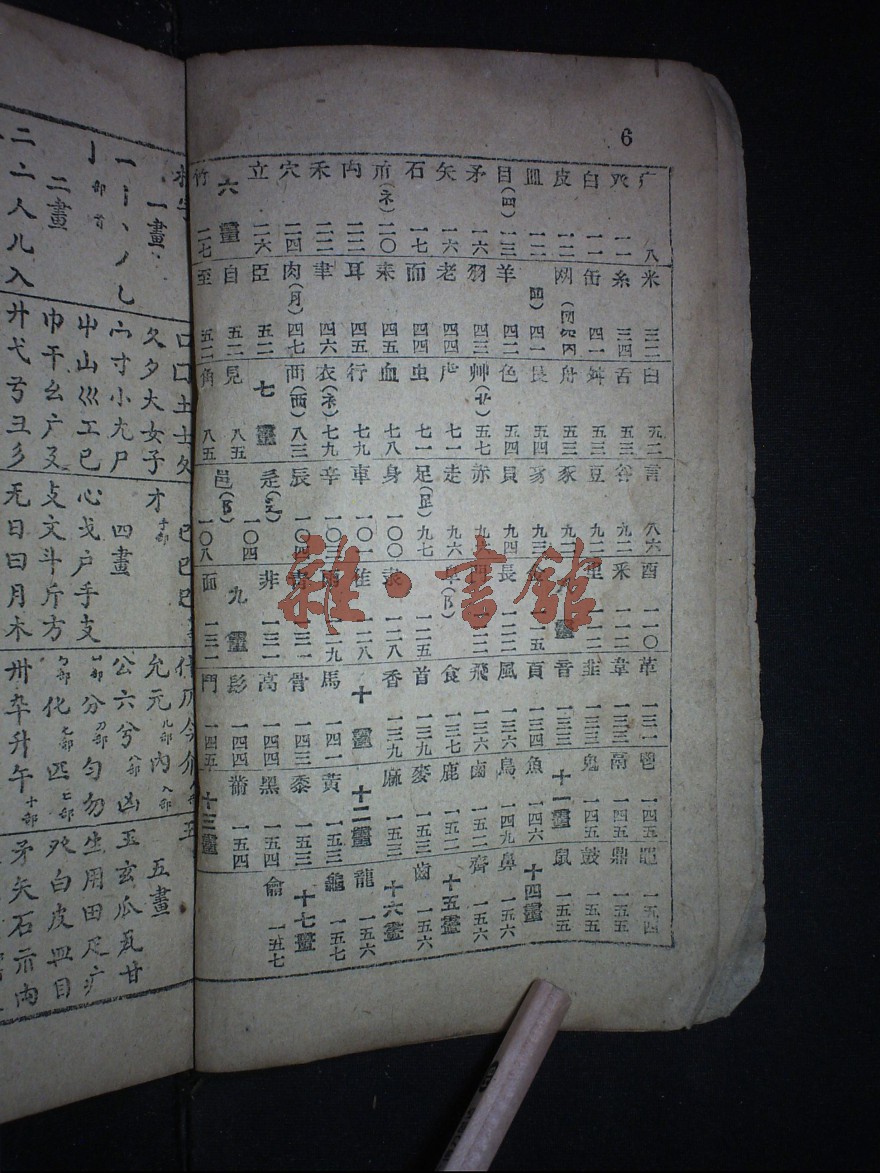 6
疒 八
癶 一一
白 一一
皮 一二
皿 一二
目(罒) 一三
矛 一六
矢 一六
石 一七
示(礻) 二〇
禸 二二
禾 二二
穴 二四
立 二六
六畫
竹 二七
米 三二
糸 三四
缶 四一
网
(罒) 四一
羊 四二
羽 四三
老 四四
而 四四
耒 四五
耳 四五
聿 四六
肉(月) 四七
臣 五二
自 五二
至 五二
臼 五二
舌 五三
舛 五三
舟 五三
艮 五四
色 五四
艸(艹) 五七
虍 七一
虫 七一
血 七八
行 七九
衣(衤) 七九
襾(西) 八三
七畫
見 八五
角 八五
言 八六
谷 九二
豆 九二
豕 九二
豸 九三
貝 九四
赤
走 九六
足(𧾷) 九七
身 一〇〇
車 一〇一
辛 一〇三
辰 一〇四
辵(辶) 一〇四
邑(阝) 一〇八
酉 一一〇
釆 一一二
里 一一二
八畫
金 一一五
長 一二二
門 一二二
阜(阝) 一二五
隶 一二八
隹 一二八
雨 一二九
靑 一三一
非 一三一
九畫
面 一三一
革 一三一
韋 一三三
韭 一三三
音 一三三
頁 一三四
風 一三六
飛 一三六
食 一三七
首 一三九
香 一三九
十畫
馬 一四一
骨 一四三
高 一四四
髟 一四四
鬥 一四五
鬯 一四五
鬲 一四五
鬼 一四五
十一畫
魚 一四六
鳥 一四九
鹵 一五二
鹿 一五二
麥 一五三
麻 一五三
十二畫
黃 一五三
黍 一五三
黑 一五四
黹 一五四
十三畫
黽 一五四
鼎 一五五
鼓 一五五
鼠 一五五
十四畫
鼻 一五六
齊 一五六
十五畫
齒 一五六
十六畫
龍 一五六
龜 一五七
十七畫
龠 一五七
雜·書館
一畫
一丨丶丿乚
亅部首
二畫
二亠人儿入
口囗土士夂
夊夕大女子
宀寸小尢尸
屮山巛工己
巾干幺广廴
廾弋弓彐彡
巳巴
才手部
四畫
心戈戶手支
攴文斗斤方
无日曰月木
什仄今介
允元儿部內入部
公六兮八部凶
分刀部勻勿
勹部化匕部匹匸部
卅卒升午十部
五畫
玉玄瓜瓦甘
生用田疋疒
癶白皮皿目
矛矢石示禸